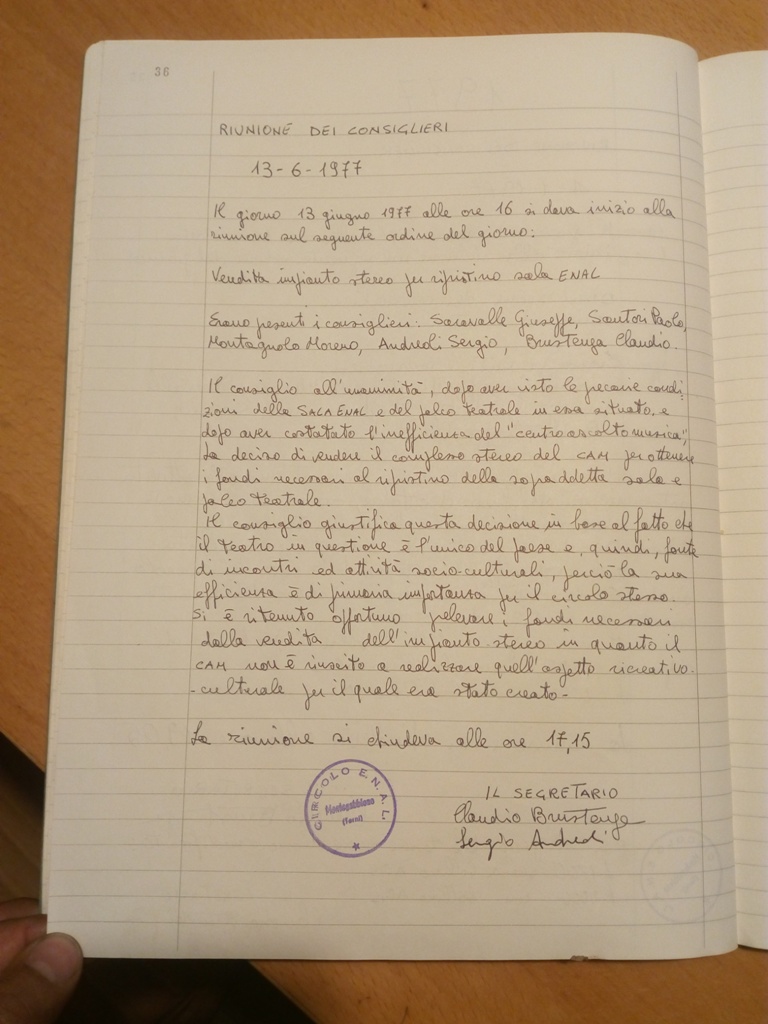 36
RIUNIONE DEI CONSIGLIERI
13-6-1977
Il giorno 13 giugno 1977 alle ore 16 si dava inizio alla
riunione sul seguente ordine del giorno:
Vendita impianto stereo per ripristino sala ENAL
Erano presenti i consiglieri: Saravalle Giuseppe, Santori Paolo,
Montagnolo Moreno, Andreoli Sergio, Brustenga Claudio.
Il consiglio all'unanimità, dopo aver visto le precarie condi-
zioni della SALA ENAL e del palco teatrale in essa situato, e
dopo aver costatato l'inefficienza del "centro ascolto musica",
ha deciso di vendere il complesso stereo del CAM per ottenere
i fondi necessari al ripristino della sopraddetta sala e
palco teatrale.
Il consiglio giustifica questa decisione in base al fatto che
il teatro in questione è l'unico del paese e, quindi, fonte
di incontri ed attività socio-culturali, perciò la sua
efficienza è di primaria importanza per il circolo stesso.
Si è ritenuto opportuno prelevare i fondi necessari
dalla vendita dell'impianto stereo in quanto il
CAM non è riuscito a realizzare quell'aspetto ricreativo-
-culturale per il quale era stato creato-
La riunione si chiudeva alle ore 17,15
CIRCOLO E.N.A.L.
Montegabbione
(Terni)
IL SEGRETARIO
Claudio Brustenga
Sergio Andreoli